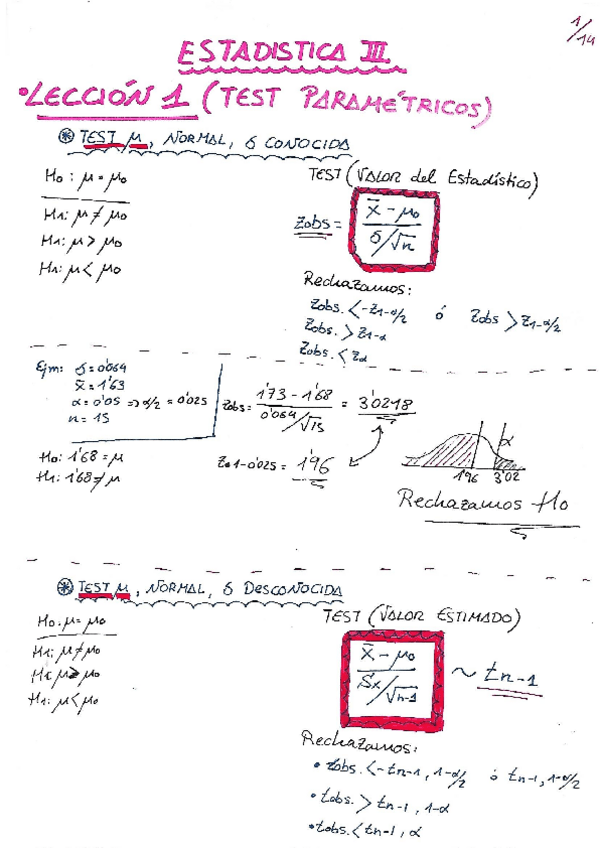 1/14
ESTADISTICA III.
• LECCIÓN 1 (TEST PARAMÉTRICOS)
⊛ TEST μ, NORMAL, σ CONOCIDA
H₀: μ = μ₀
H₁: μ ≠ μ₀
H₁: μ > μ₀
H₁: μ < μ₀
TEST (VALOR del Estadístico)
Zobs = (x̄ - μ₀) / (σ/√n)
Rechazamos:
Zobs. < -Z1-α/2 ó Zobs > Z1-α/2
Zobs. > Z1-α
Zobs. < Zα
Ejm: σ = 0'064
x̄ = 1'63
α = 0'05 ⇒ α/2 = 0'025
n = 15
H₀: 1'68 = μ
H₁: 1'68 ≠ μ
Zobs = (1'73 - 1'68) / (0'064/√15) = 3'0218
Z1-0'025 = 1'96
α
1'96 3'02
Rechazamos H₀
⊛ TEST μ, NORMAL, σ DESCONOCIDA
H₀: μ = μ₀
H₁: μ ≠ μ₀
H₁: μ > μ₀
H₁: μ < μ₀
TEST (VALOR ESTIMADO)
(x̄ - μ₀) / (Sx/√n-1) ~ tn-1
Rechazamos:
• tobs. < -tn-1, 1-α/2 ó tn-1, 1-α/2
• tobs. > tn-1, 1-α
• tobs. < tn-1, α